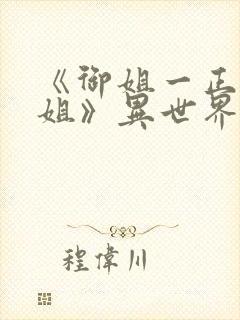 《御姐一正
姐》異世界
程偉川